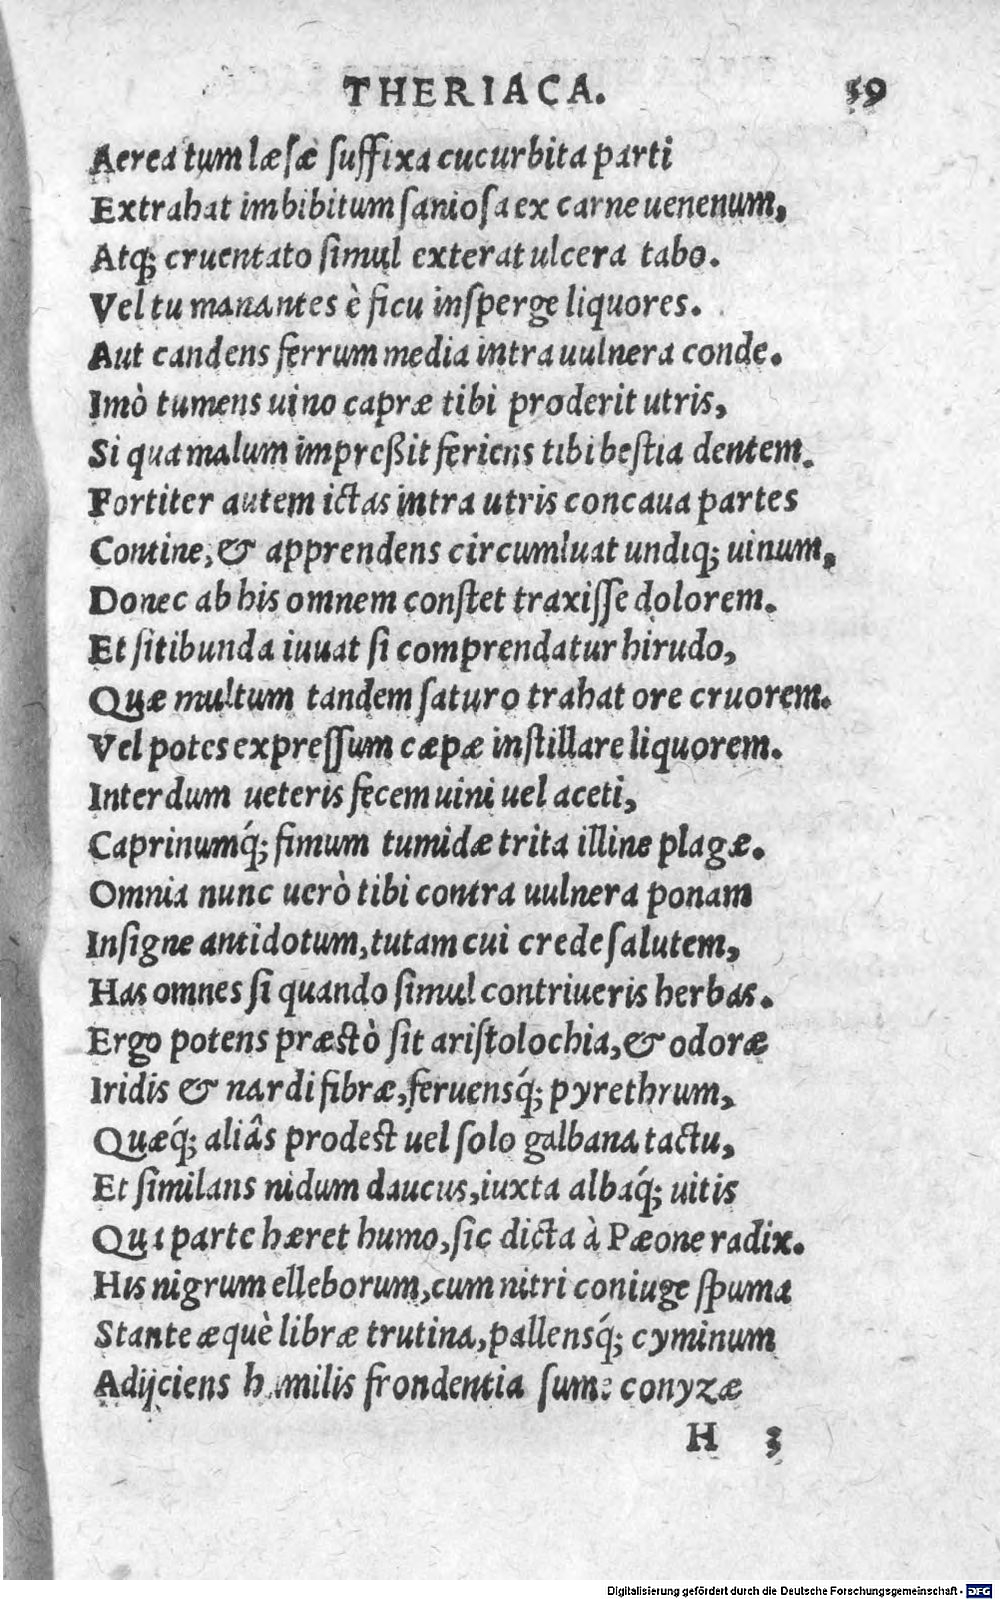 THERIACA. 59
Aerea tum læsæ suffixa cucurbita parti
Extrahat imbibitum saniosa ex carne uenenum,
Atq; cruentato simul exterat ulcera tabo.
Vel tu manantes è ficu insperge liquores.
Aut candens ferrum media intra uulnera conde.
Imò tumens uino capræ tibi proderit utris,
Si qua malum impreßit feriens tibi bestia dentem.
Fortiter autem ictas intra utris concaua partes
Contine, & apprendens circumluat undiq; uinum,
Donec ab his omnem constet traxisse dolorem.
Et sitibunda iuuat si comprendatur hirudo,
Quæ multum tandem saturo trahat ore cruorem.
Vel potes expressum cæpæ instillare liquorem.
Interdum ueteris fecem uini uel aceti,
Caprinumq́; fimum tumidæ trita illine plagæ.
Omnia nunc uerò tibi contra uulnera ponam
Insigne antidotum, tutam cui crede salutem,
Has omnes si quando simul contriueris herbas.
Ergo potens præstò sit aristolochia, & odoræ
Iridis & nardi fibræ, feruensq́; pyrethrum,
Quæq́; aliâs prodest uel solo galbana tactu,
Et similans nidum daucus, iuxta albaq́; uitis
Qua parte hæret humo, sic dicta à Pæone radix.
His nigrum elleborum, cum nitri coniuge spuma
Stante æquè libræ trutina, pallensq́; cyminum
Adijciens humilis frondentia sume conyzæ
H 3
Digitalisierung gefördert durch die Deutsche Forschungsgemeinschaft - DFG